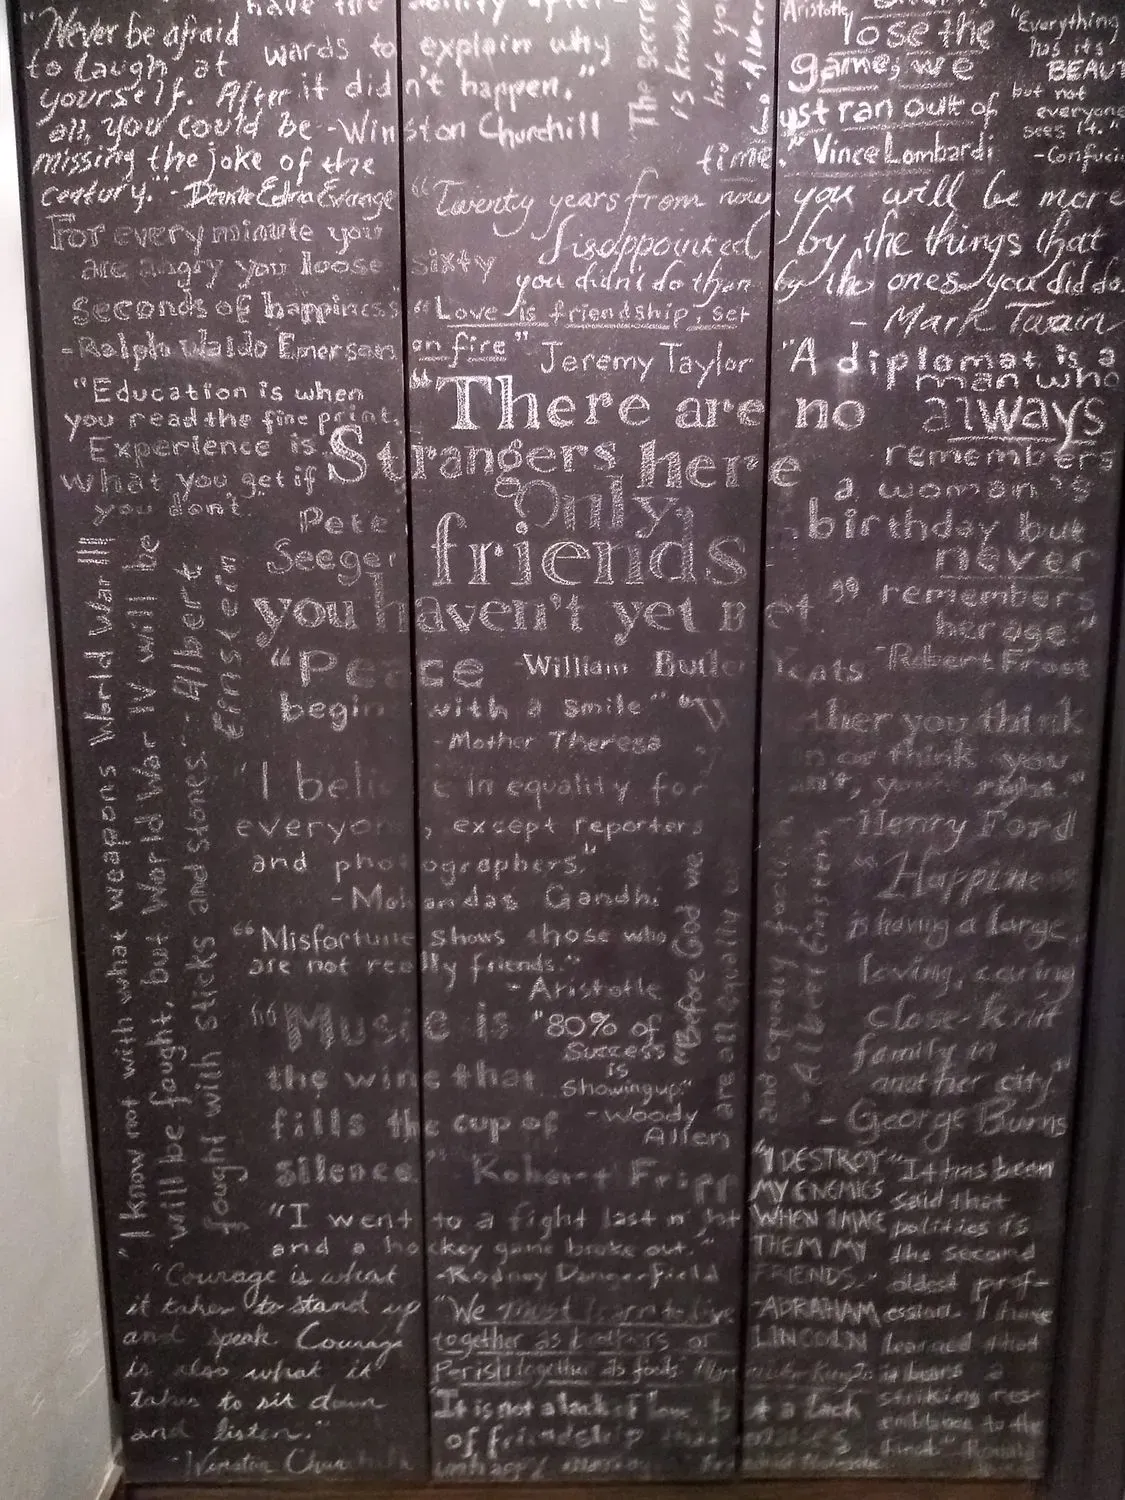 "Never be afraid
to laugh at
yourself. After
all, you could be
missing the joke of the
century." -Dame Edna Everage
have the ability after-
wards to explain why
it didn't happen."
-Winston Churchill
The secre
is knowin
hide you
Alber
Aristotle
lose the
game; we
just ran out of
time." Vince Lombardi
"Everything
has its
BEAUT
but not
everyone
sees it."
-Confuciu
For every minute you
are angry you loose sixty
seconds of happiness"
-Ralph Waldo Emerson
"Twenty years from now you will be more
disappointed by the things that
you didn't do than by the ones you did do.
- Mark Twain
"Love is friendship, set
on fire" Jeremy Taylor
"Education is when
you read the fine print,
Experience is
what you get if
you don't."
Pete
Seeger
"There are no
Strangers here
Only
friends
you haven't yet met"
-William Butler Yeats
"A diplomat is a
man who
always
remembers
a woman's
birthday but
never
remembers
her age."
-Robert Frost
"I know not with what weapons World War III
will be fought, but World War IV will be
fought with sticks and stones." -Albert
Einstein
"Peace
begins with a smile"
-Mother Theresa
ther you think
or think you
right."
-Henry Ford
"I believe in equality for
everyone, except reporters
and photographers."
-Mohandas Gandhi
"Misfortune shows those who
are not really friends."
-Aristotle
"Before God we
are all equally
and equally foolish
-Albert Einstein
"Happiness
is having a large,
loving, caring
close-knit
family in
another city"
- George Burns
"Music is
the wine that
fills the cup of
silence" Robert Fripp
"80% of
Success
is
Showing up."
-Woody
Allen
"I went to a fight last night
and a hockey game broke out."
-Rodney Dangerfield
"I DESTROY
MY ENEMIES
WHEN I MAKE
THEM MY
FRIENDS."
-ABRAHAM
LINCOLN
"It has been
said that
politics is
the second
oldest prof-
ession. I have
learned that
it bears a
striking res-
emblance to the
first"
"Courage is what
it takes to stand up
and speak Courage
is also what it
takes to sit down
and listen."
-Winston Churchill
"We must learn to live
together as brothers or
Perish together as fools"
It is not a lack of love, but a lack
of friendship that makes
unhappy